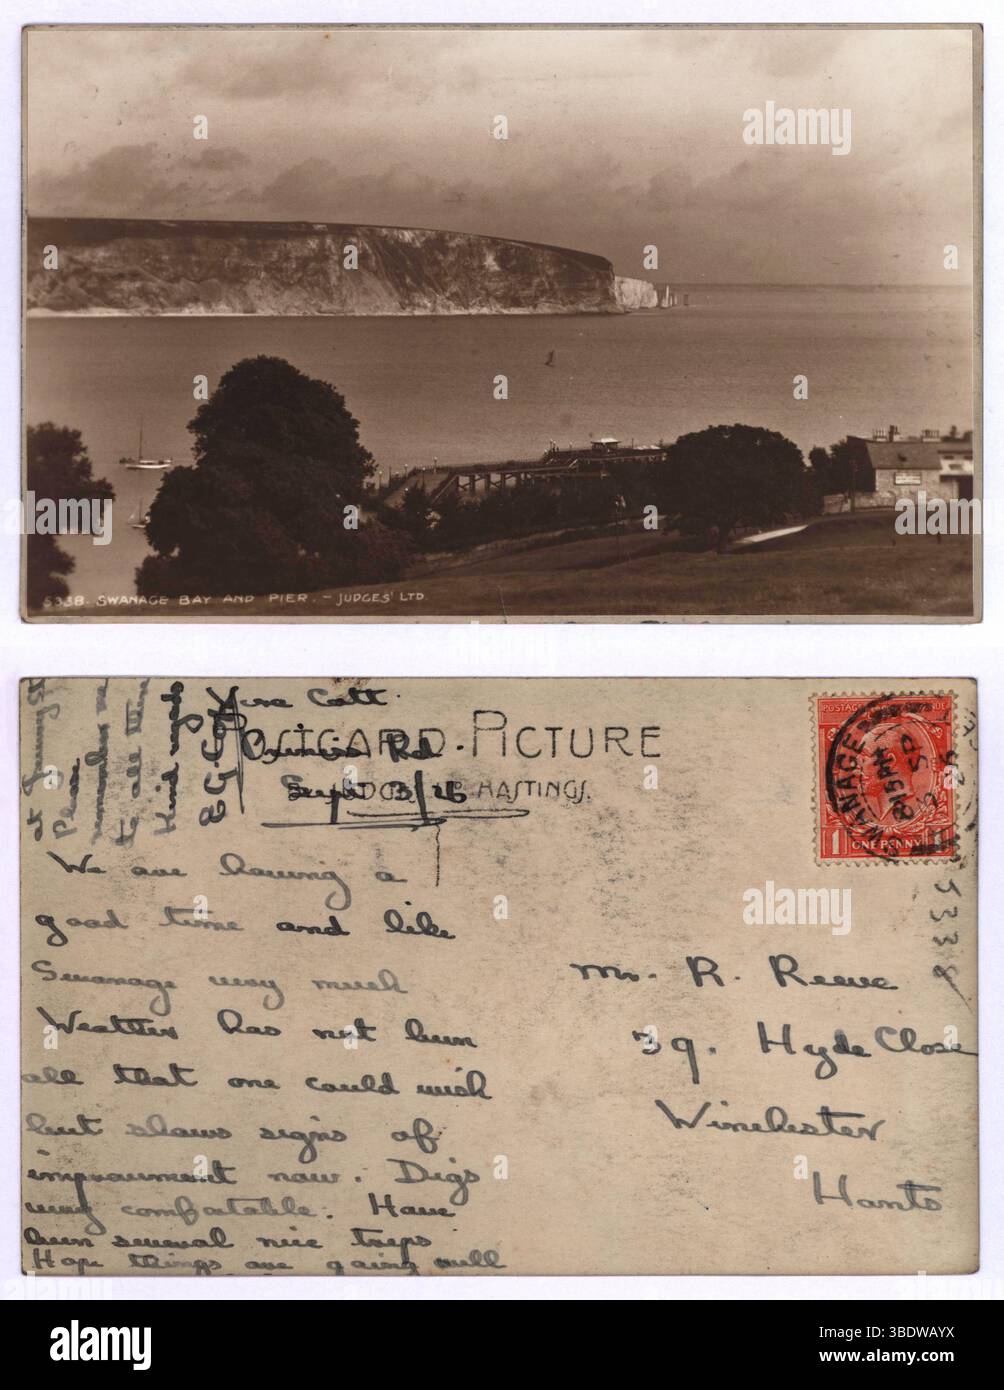 5338. SWANAGE BAY AND PIER. - JUDGES' LTD.
Vine Cott
Road
Sept 3/26
POSTCARD PICTURE
HASTINGS.
POSTAGE
1 ONE PENNY 1
SWANAGE
8 15 PM
SP
26
5338
We are having a
good time and like
Swanage very much
Weather has not been
all that one could wish
but shows signs of
improvement now. Digs
very comfortable. Have
been several nice trips
Hope things are going well
at
Please
remember me
to all
Kind regards
Mr. R. Reeve
39. Hyde Close
Winchester
Hants
alamy
Image ID: 3BDWAYX
www.alamy.com